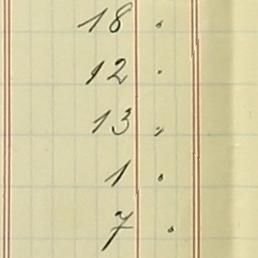 18 "
12 "
13 "
1 "
7 "